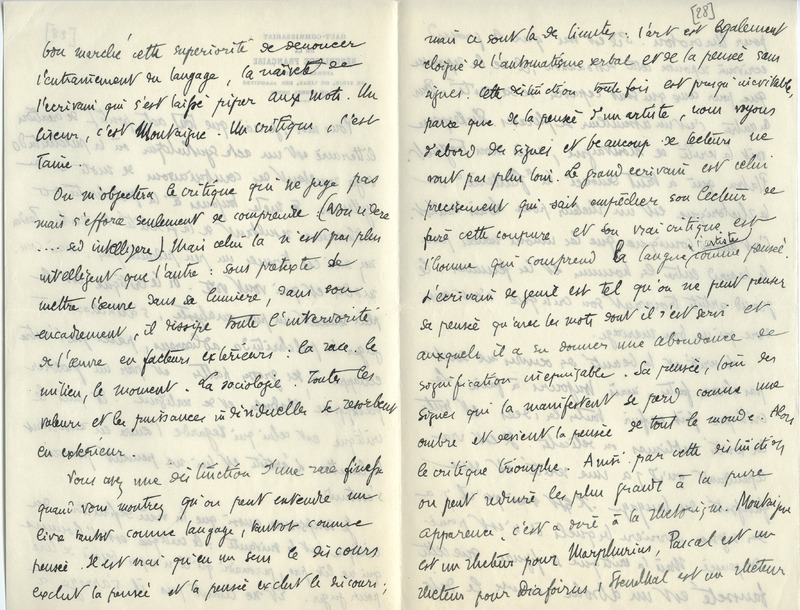 bon marché cette superiorité de denoncer
l'entrainement du langage, la naïveté de
l'ecrivain qui s'est laissé piper aux mots. Un
liseur, c'est Montaigne. Un critique, c'est
Taine.
On m'objectera le critique qui ne juge pas
mais s'efforce seulement de comprendre. (Non ridere
.... sed intelligere) Mais celui la n'est pas plus
intelligent que l'autre : sous pretexte de
mettre l'œuvre dans sa lumiere, dans son
encadrement, il dissipe toute l'interiorité
de l'œuvre en facteurs exterieurs : la race. le
milieu, le moment. La sociologie. Toutes les
valeurs et les puissances individuelles se resorbent
en exterieur.
Vous avez une distinction d'une rare finesse
quand vous montrez qu'on peut entendre un
livre tantot comme langage, tantot comme
pensée. Il est vrai qu'en un sens le discours
exclut la pensée et la pensée exclut le discours ;
[28]
mais ce sont la des limites : l'art est egalement
eloigné de l'automatisme verbal et de la pensée sans
signes. Cette distinction toutefois est presqu'inevitable,
parce que de la pensée d'un artiste, nous voyons
d'abord des signes et beaucoup de lecteurs ne
vont pas plus loin. Le grand ecrivain est celui
precisement qui sait empêcher son lecteur de
faire cette coupure et son vrai critique est
l'artiste
l'homme qui comprend la langue comme pensée.
L'ecrivain de genie est tel qu'on ne peut penser
sa pensée qu'avec les mots dont il s'est servi et
auxquels il a su donner une abondance de
signification inepuisable. Sa pensée, loin des
signes qui la manifestent se perd comme une
ombre et devient la pensée de tout le monde. Alors
le critique triomphe. Aussi par cette distinction
on peut reduire les plus grands à la pure
apparence, c'est a dire à la rhetorique. Montaigne
est un rheteur pour Marphurius, Pascal est un
rheteur pour Diafoirus, Stendhal est un rheteur